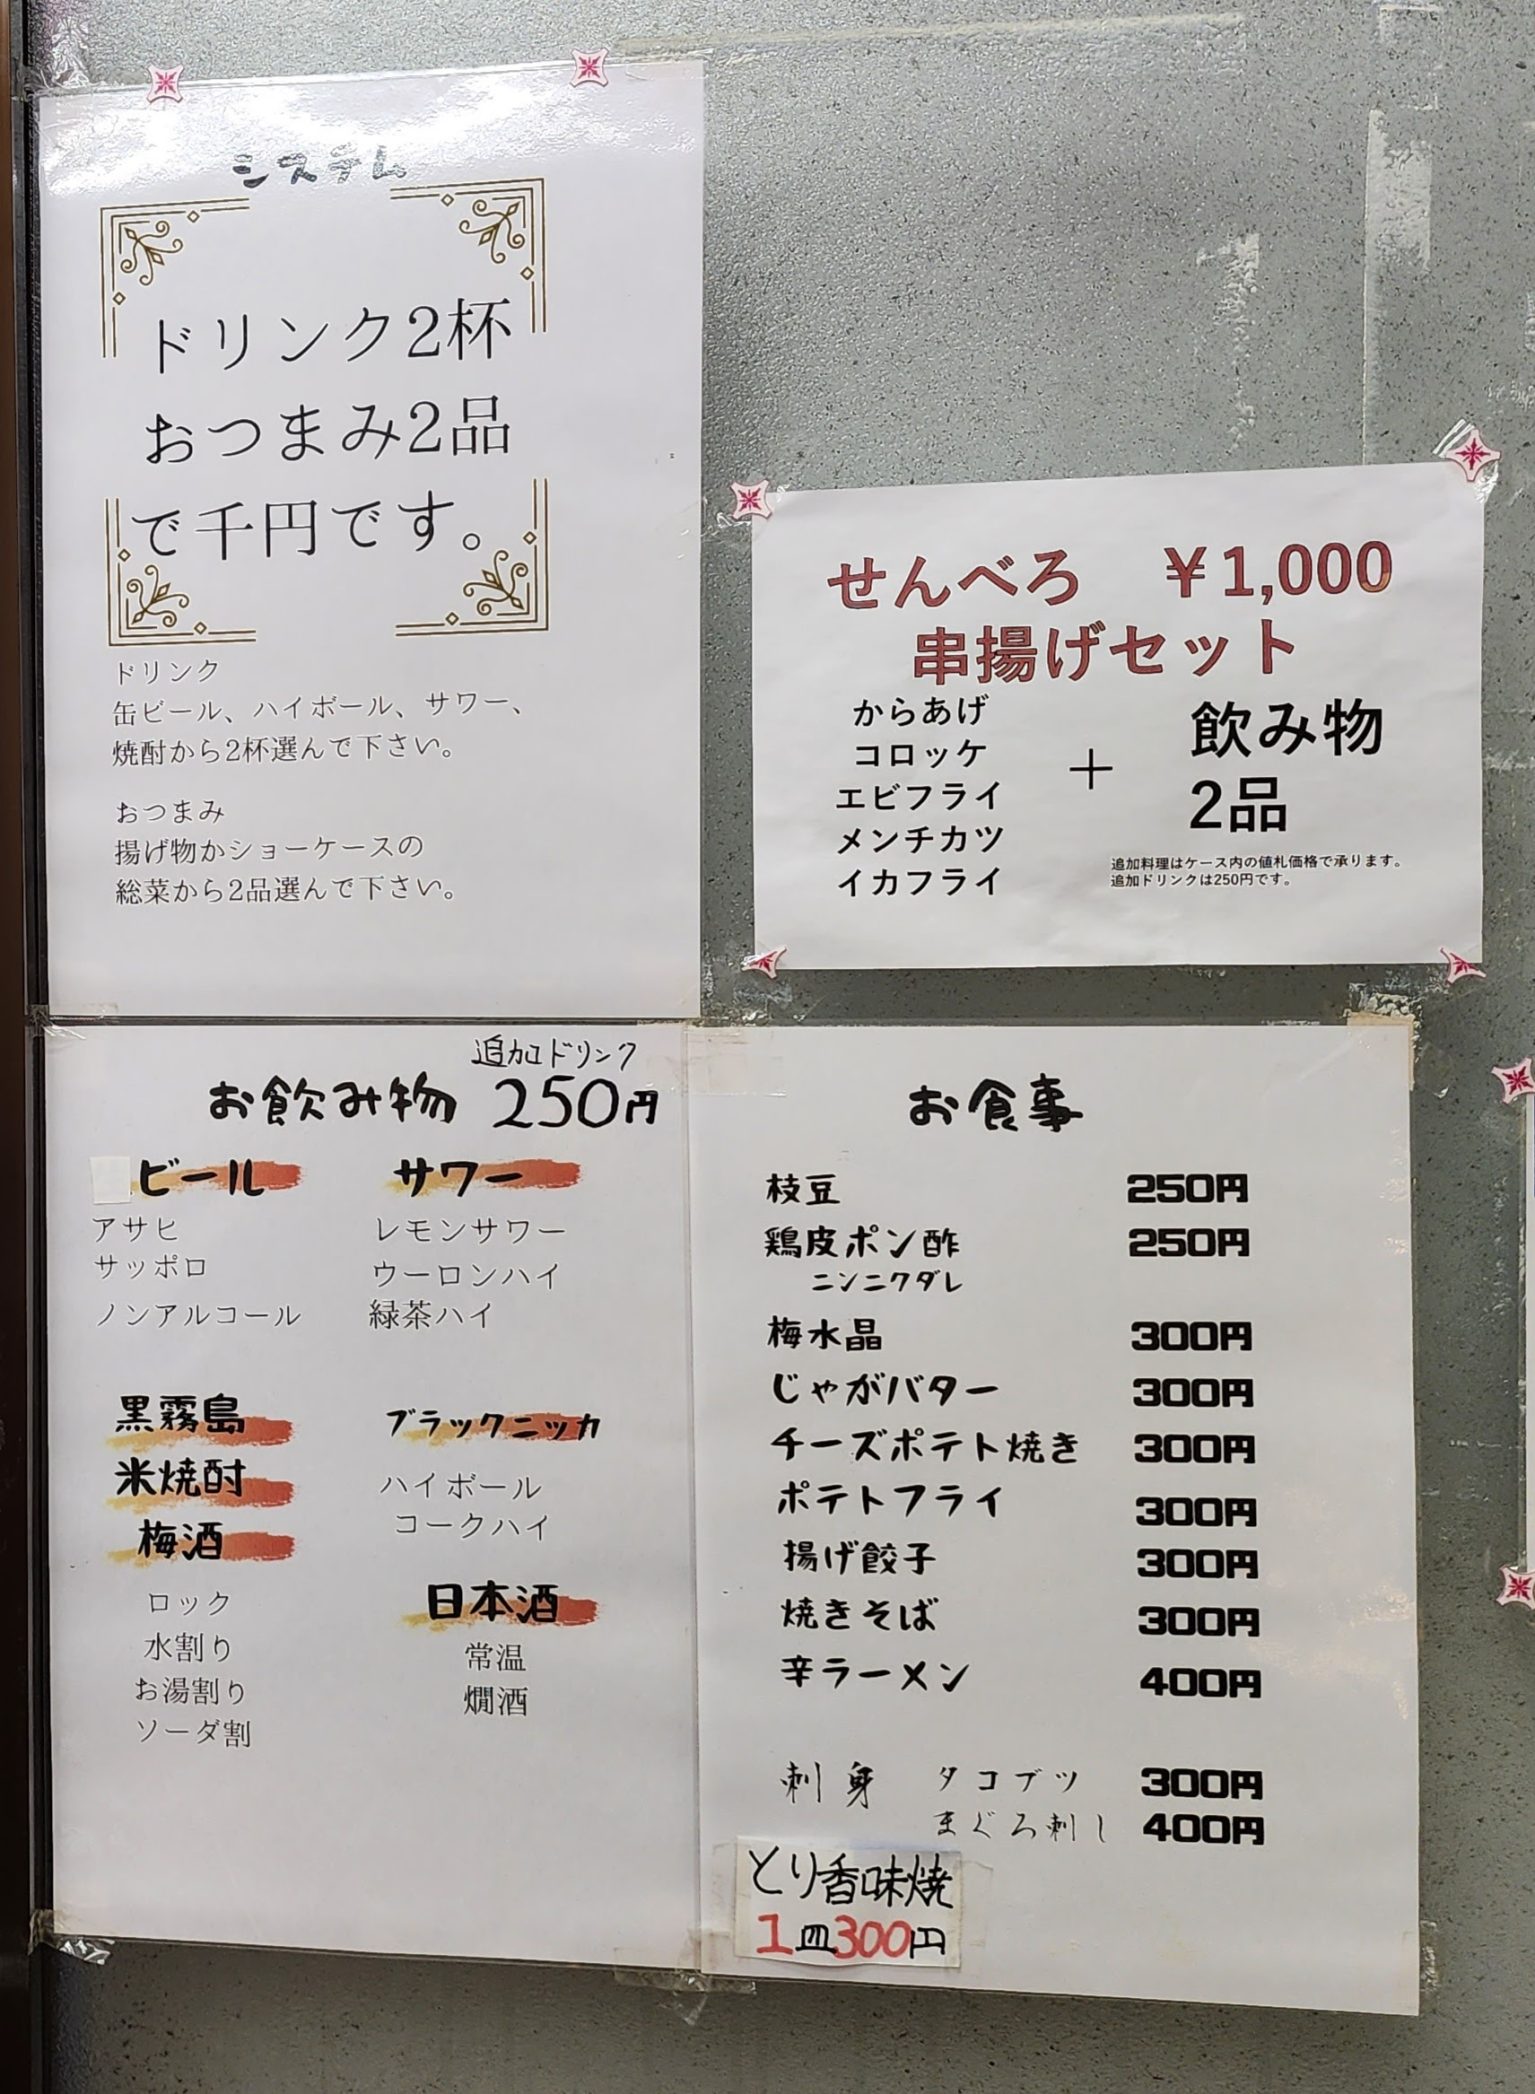 システム
ドリンク2杯
おつまみ2品
で千円です。
ドリンク
缶ビール、ハイボール、サワー、
焼酎から2杯選んで下さい。
おつまみ
揚げ物かショーケースの
総菜から2品選んで下さい。
せんべろ ¥1,000
串揚げセット
からあげ
コロッケ
エビフライ
メンチカツ
イカフライ
+
飲み物
2品
追加料理はケース内の値札価格で承ります。
追加ドリンクは250円です。
追加ドリンク
お飲み物 250円
ビール
アサヒ
サッポロ
ノンアルコール
サワー
レモンサワー
ウーロンハイ
緑茶ハイ
黒霧島
米焼酎
梅酒
ロック
水割り
お湯割り
ソーダ割
ブラックニッカ
ハイボール
コークハイ
日本酒
常温
燗酒
お食事
枝豆 250円
鶏皮ポン酢 250円
ニンニクダレ
梅水晶 300円
じゃがバター 300円
チーズポテト焼き 300円
ポテトフライ 300円
揚げ餃子 300円
焼きそば 300円
辛ラーメン 400円
刺身 タコブツ 300円
まぐろ刺し 400円
とり香味焼
1皿300円